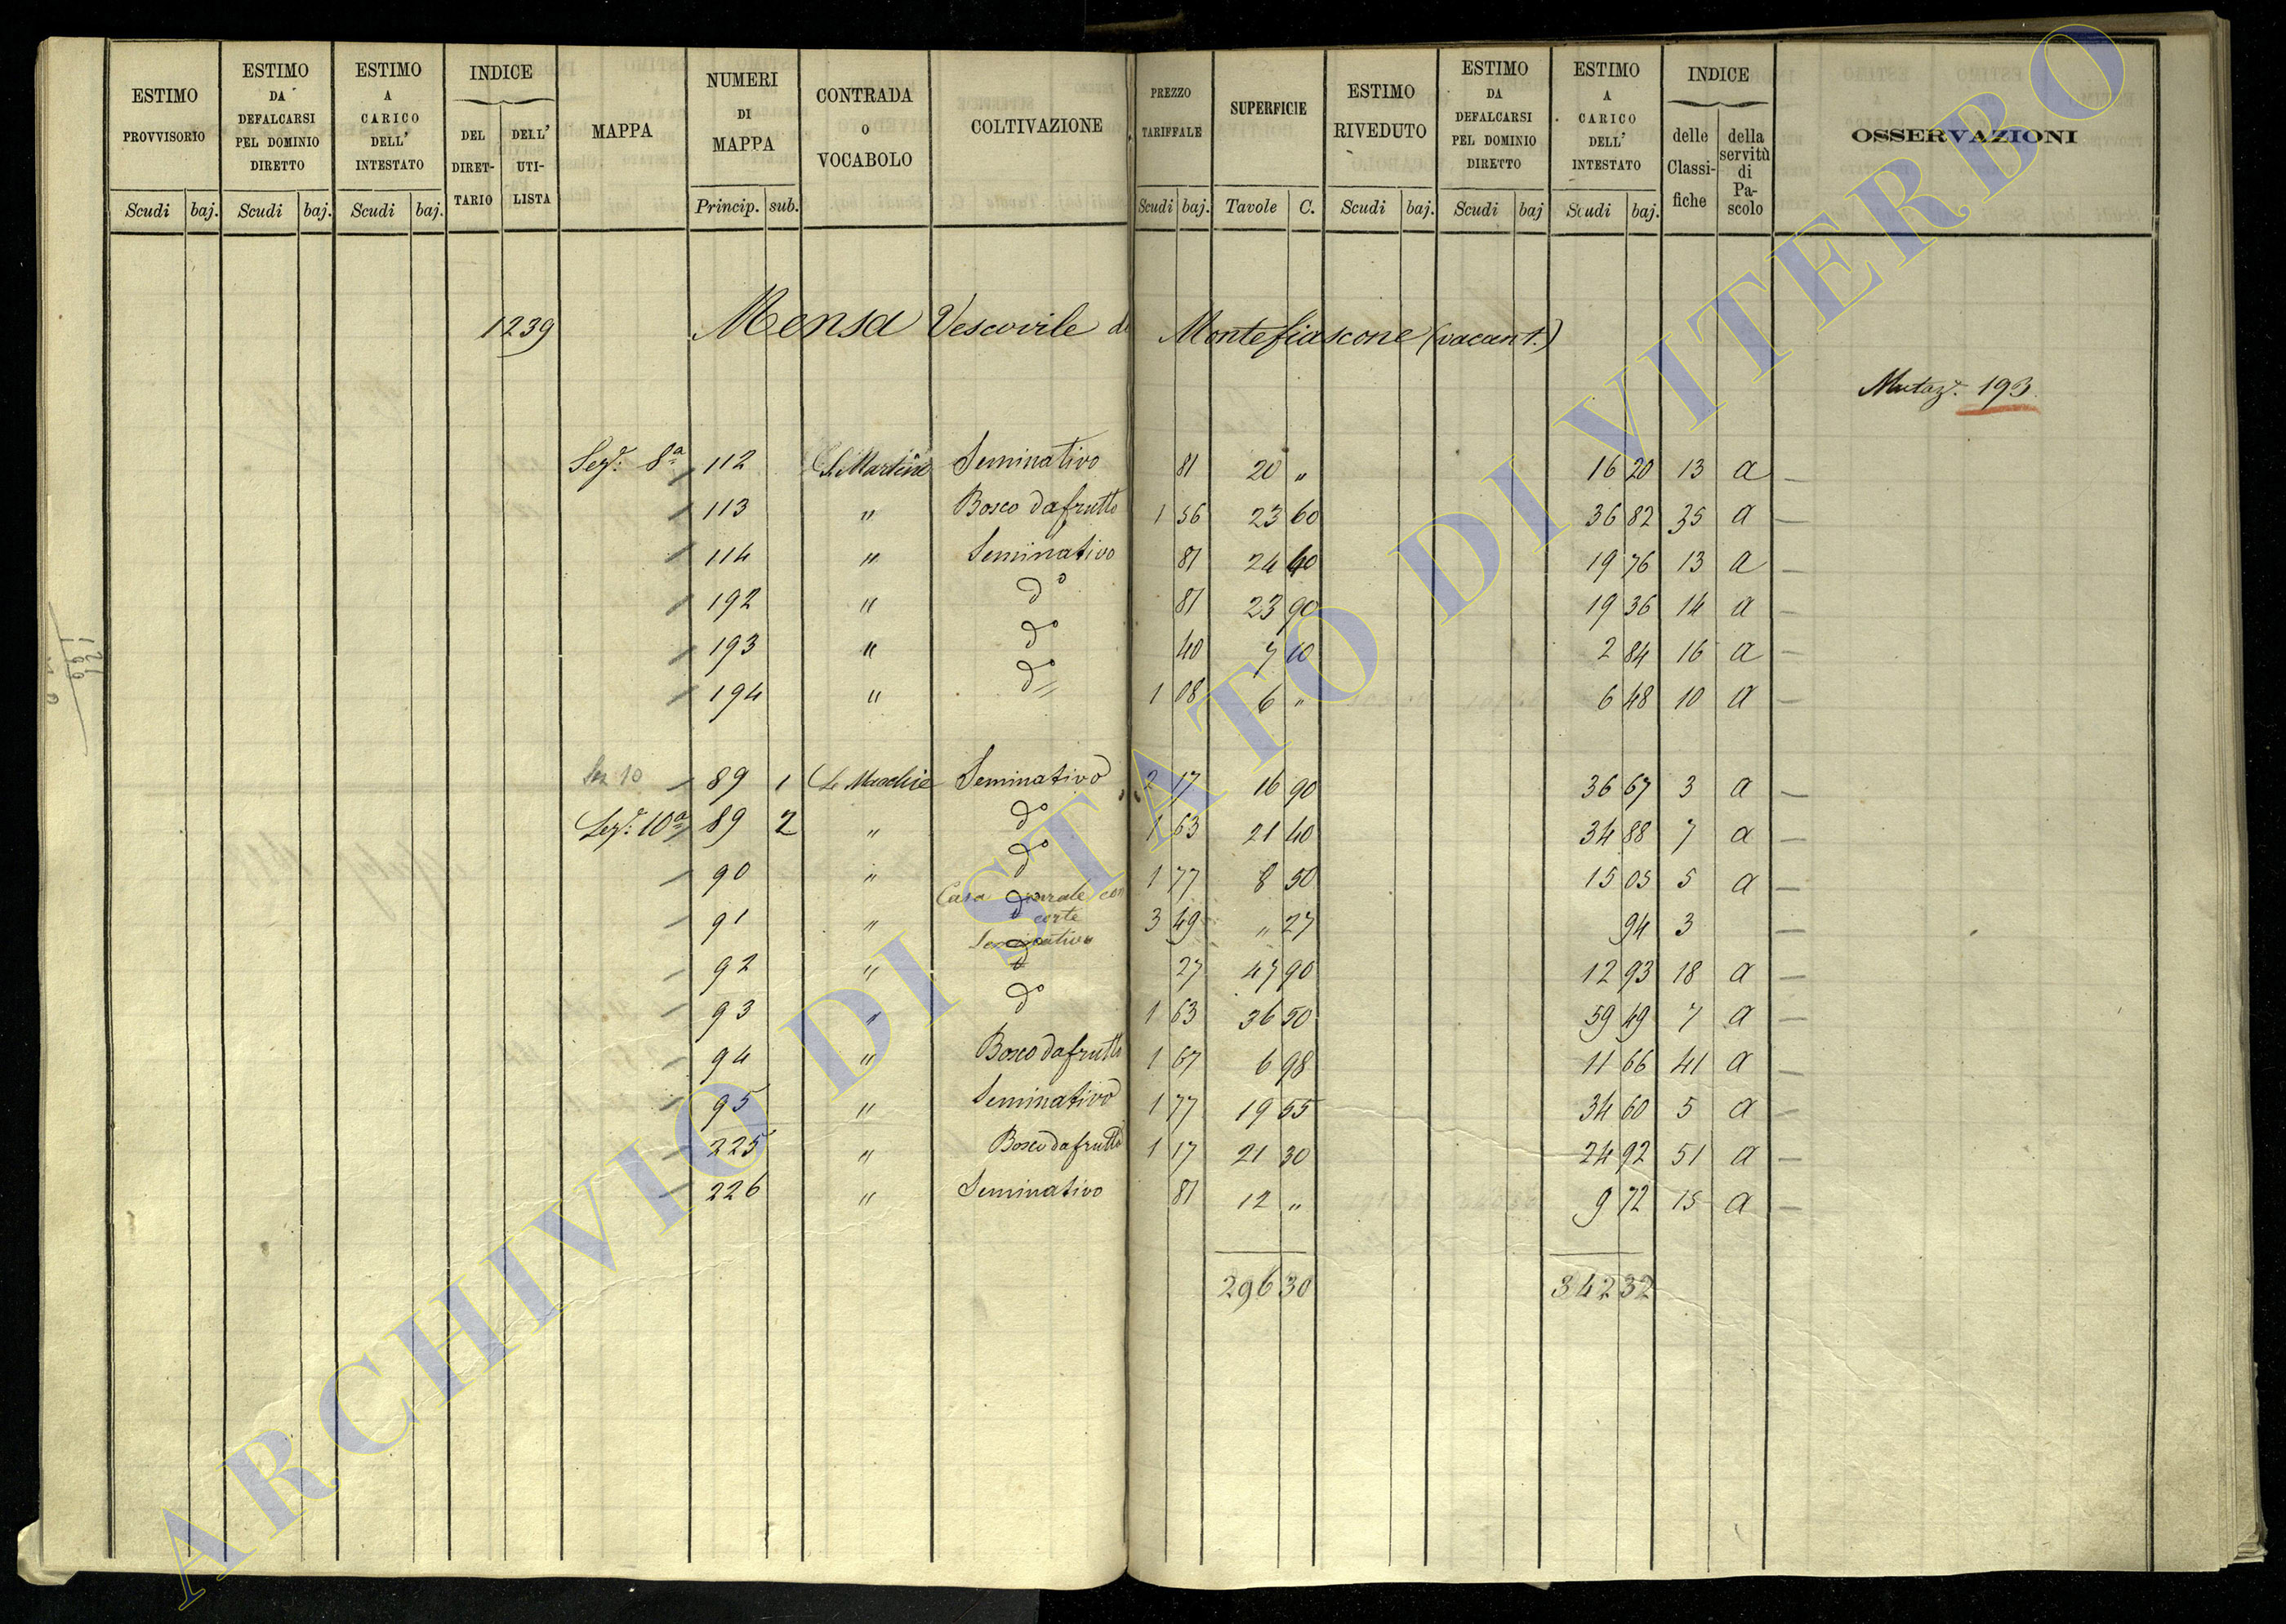 ESTIMO PROVVISORIO | ESTIMO DA DEFALCARSI PEL DOMINIO DIRETTO | ESTIMO A CARICO DELL' INTESTATO | INDICE DEL DIRETTARIO | DELL' UTILISTA | MAPPA | NUMERI DI MAPPA | CONTRADA O VOCABOLO | COLTIVAZIONE | PREZZO TARIFFALE | SUPERFICIE | ESTIMO RIVEDUTO | ESTIMO DA DEFALCARSI PEL DOMINIO DIRETTO | ESTIMO A CARICO DELL' INTESTATO | INDICE delle Classifiche | della servitù di Pascolo | OSSERVAZIONI
Scudi baj. | Scudi baj. | Scudi baj. | Princip. sub. | Scudi baj. | Tavole C. | Scudi baj. | Scudi baj | Scudi baj.
1239 Mensa Vescovile di Montefiascone (vacant.)
Mutaz. 193
Sez. 8a 112 S. Martino Seminativo 81 20 " 16 20 13 a
113 " Bosco da frutto 1 56 23 60 36 82 35 a
114 " Seminativo 81 24 40 19 76 13 a
192 " do 81 23 90 19 36 14 a
193 " do 40 7 10 2 84 16 a
194 " do 1 08 6 " 6 48 10 a
Sez 10 89 1 Le Macchie Seminativo 2 17 16 90 36 67 3 a
Sez. 10a 89 2 " do 1 63 21 40 34 88 7 a
90 " do 1 77 8 50 15 05 5 a
91 " Casa rurale con corte 3 49 " 27 94 3
92 " Seminativo 27 47 90 12 93 18 a
93 " do 1 63 36 50 59 49 7 a
94 " Bosco da frutto 1 67 6 98 11 66 41 a
95 " Seminativo 1 77 19 55 34 60 5 a
225 " Bosco da frutto 1 17 21 30 24 92 51 a
226 " Seminativo 81 12 " 9 72 15 a
296 30 342 32
ARCHIVIO DI STATO DI VITERBO